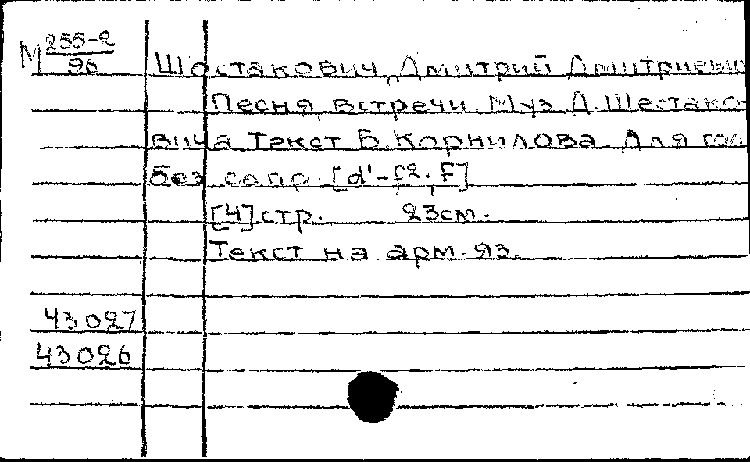 М 255-2
96
Шостакович, Дмитрий Дмитриевич
Песня встречи. Муз. Д. Шостако-
вича. Текст Б. Корнилова. Для гол.
без сопр. [d'-f². F]
[4] стр. 23см.
Текст на арм. яз.
43027
43026